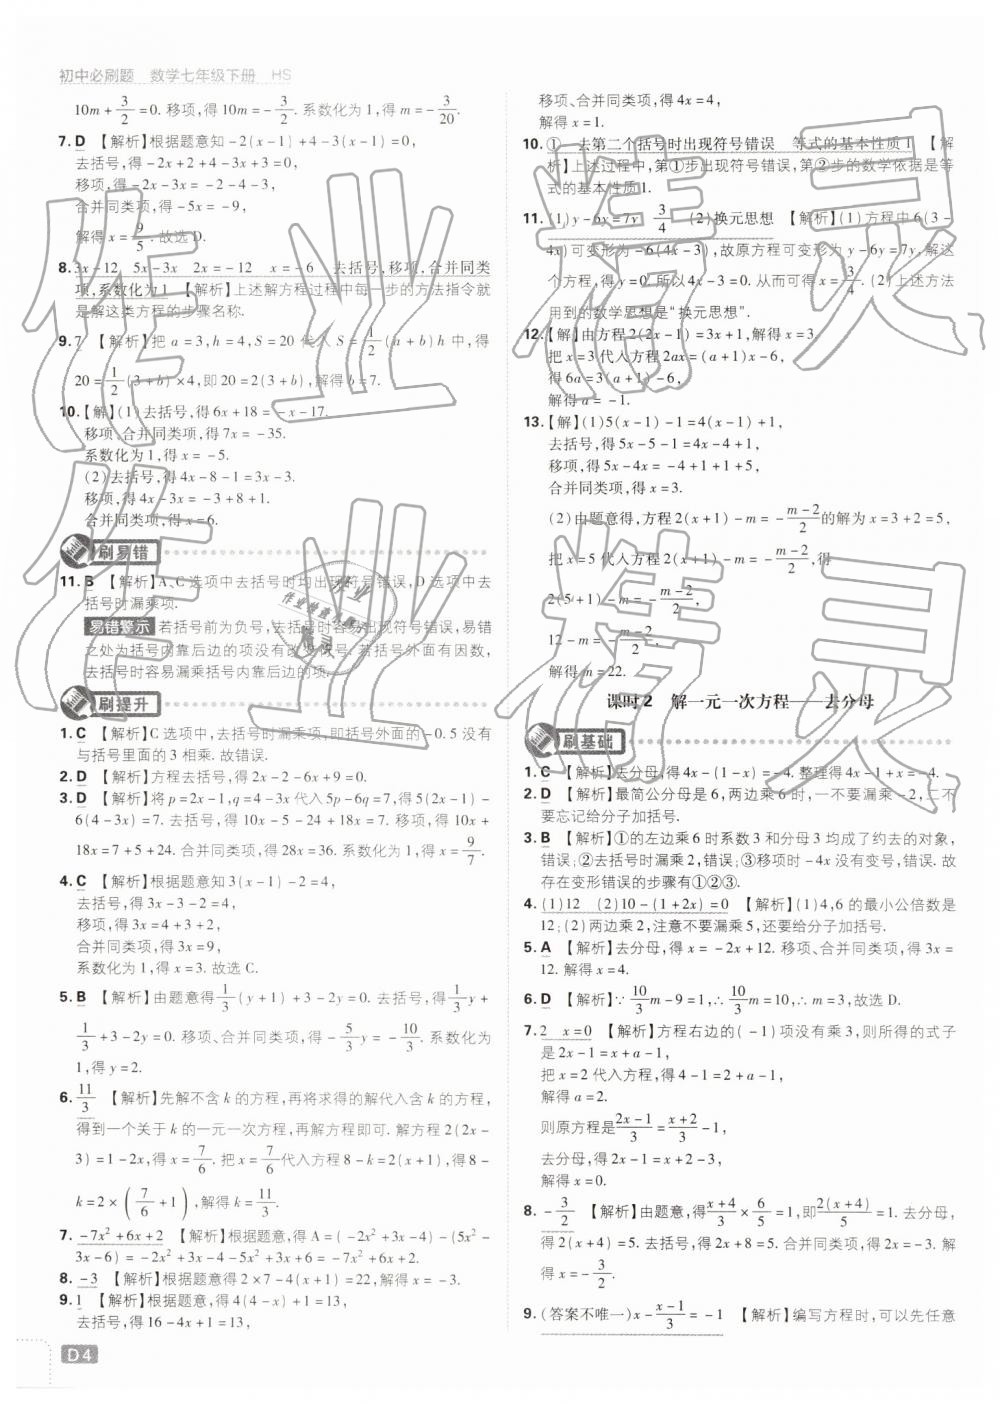 初中必刷题 数学七年级下册 HS
10m+3/2=0. 移项,得10m=-3/2. 系数化为1,得m=-3/20.
7. D 【解析】根据题意知-2(x-1)+4-3(x-1)=0,
去括号,得-2x+2+4-3x+3=0,
移项,得-2x-3x=-2-4-3,
合并同类项,得-5x=-9,
解得x=9/5. 故选D.
8. 3x-12 5x-3x 2x=-12 x=-6 去括号,移项,合并同类
项,系数化为1 【解析】上述解方程过程中每一步的方法指令就
是解这类方程的步骤名称.
9. 7 【解析】把a=3,h=4,S=20代入S=1/2(a+b)h中,得
20=1/2(3+b)×4,即20=2(3+b),解得b=7.
10. 【解】(1)去括号,得6x+18=-x-17.
移项、合并同类项,得7x=-35.
系数化为1,得x=-5.
(2)去括号,得4x-8-1=3x-3.
移项,得4x-3x=-3+8+1.
合并同类项,得x=6.
刷易错
11. B 【解析】A、C选项中去括号时均出现符号错误,D选项中去
括号时漏乘项.
易错警示 若括号前为负号,去括号时容易出现符号错误,易错
之处为括号内靠后边的项没有改变符号. 若括号外有因数,
去括号时容易漏乘括号内靠后边的项.
刷提升
1. C 【解析】C选项中,去括号时漏乘项,即括号外面的-0.5没有
与括号里面的3相乘. 故错误.
2. D 【解析】方程去括号,得2x-2-6x+9=0.
3. D 【解析】将p=2x-1,q=4-3x代入5p-6q=7,得5(2x-1)-
6(4-3x)=7. 去括号,得10x-5-24+18x=7. 移项,得10x+
18x=7+5+24. 合并同类项,得28x=36. 系数化为1,得x=9/7.
4. C 【解析】根据题意知3(x-1)-2=4,
去括号,得3x-3-2=4,
移项,得3x=4+3+2,
合并同类项,得3x=9,
系数化为1,得x=3. 故选C.
5. B 【解析】由题意得1/3(y+1)+3-2y=0. 去括号,得1/3y+
1/3+3-2y=0. 移项、合并同类项,得-5/3y=-10/3. 系数化为
1,得y=2.
6. 11/3 【解析】先解不含k的方程,再将求得的解代入含k的方程,
得到一个关于k的一元一次方程,再解方程即可. 解方程2(2x-
3)=1-2x,得x=7/6. 把x=7/6代入方程8-k=2(x+1),得8-
k=2×(7/6+1),解得k=11/3.
7. -7x²+6x+2 【解析】根据题意,得A=(-2x²+3x-4)-(5x²-
3x-6)=-2x²+3x-4-5x²+3x+6=-7x²+6x+2.
8. -3 【解析】根据题意得2×7-4(x+1)=22,解得x=-3.
9. 1 【解析】根据题意,得4(4-x)+1=13,
去括号,得16-4x+1=13,
D4
移项、合并同类项,得4x=4,
解得x=1.
10. ① 去第二个括号时出现符号错误 等式的基本性质1 【解
析】上述过程中,第①步出现符号错误,第②步的数学依据是等
式的基本性质1.
11. (1)y-6y=7y 3/4 (2)换元思想 【解析】(1)方程中6(3-
4x)可变形为-6(4x-3),故原方程可变形为y-6y=7y,解这
个方程,得y=0. 所以4x-3=0. 从而可得x=3/4. (2)上述方法
用到的数学思想是“换元思想”.
12. 【解】由方程2(2x-1)=3x+1,解得x=3.
把x=3代入方程2ax=(a+1)x-6,
得6a=3(a+1)-6,
解得a=-1.
13. 【解】(1)5(x-1)-1=4(x-1)+1,
去括号,得5x-5-1=4x-4+1,
移项,得5x-4x=-4+1+1+5,
合并同类项,得x=3.
(2)由题意得,方程2(x+1)-m=-m-2/2的解为x=3+2=5,
把x=5代入方程2(x+1)-m=-m-2/2,得
2(5+1)-m=-m-2/2,
12-m=-m-2/2,
解得m=22.
课时2 解一元一次方程——去分母
刷基础
1. C 【解析】去分母,得4x-(1-x)=-4. 整理得4x-1+x=-4.
2. D 【解析】最简公分母是6,两边乘6时,一不要漏乘-2,二不
要忘记给分子加括号.
3. B 【解析】①的左边乘6时系数3和分母3均成了约去的对象,
错误;②去括号时漏乘2,错误;③移项时-4x没有变号,错误. 故
存在变形错误的步骤有①②③.
4. (1)12 (2)10-(1+2x)=0 【解析】(1)4,6的最小公倍数是
12;(2)两边乘2,注意不要漏乘5,还要给分子加括号.
5. A 【解析】去分母,得x=-2x+12. 移项、合并同类项,得3x=
12. 解得x=4.
6. D 【解析】∵10/3m-9=1,∴10/3m=10,∴m=3,故选D.
7. 2 x=0 【解析】方程右边的(-1)项没有乘3,则所得的式子
是2x-1=x+a-1,
把x=2代入方程,得4-1=2+a-1,
解得a=2.
则原方程是2x-1/3=x+2/3-1,
去分母,得2x-1=x+2-3,
解得x=0.
8. -3/2 【解析】由题意,得x+4/3×6/5=1,即2(x+4)/5=1. 去分母,
得2(x+4)=5. 去括号,得2x+8=5. 合并同类项,得2x=-3. 解
得x=-3/2.
9. (答案不唯一)x-x-1/3=-1 【解析】编写方程时,可以先任意
作业精灵
作业精灵